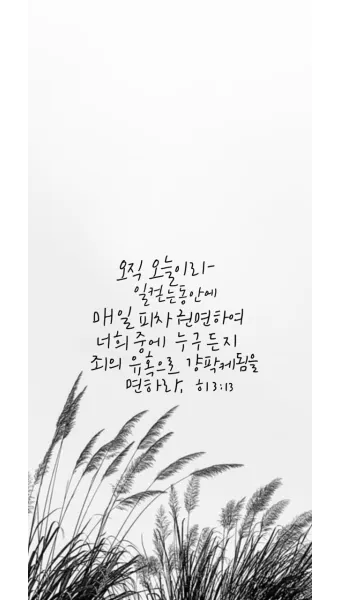 오직 오늘이라
일컫는동안에
매일 피차 권면하여
너희 중에 누구든지
죄의 유혹으로 강팍케됨을
면하라, 히 3:13